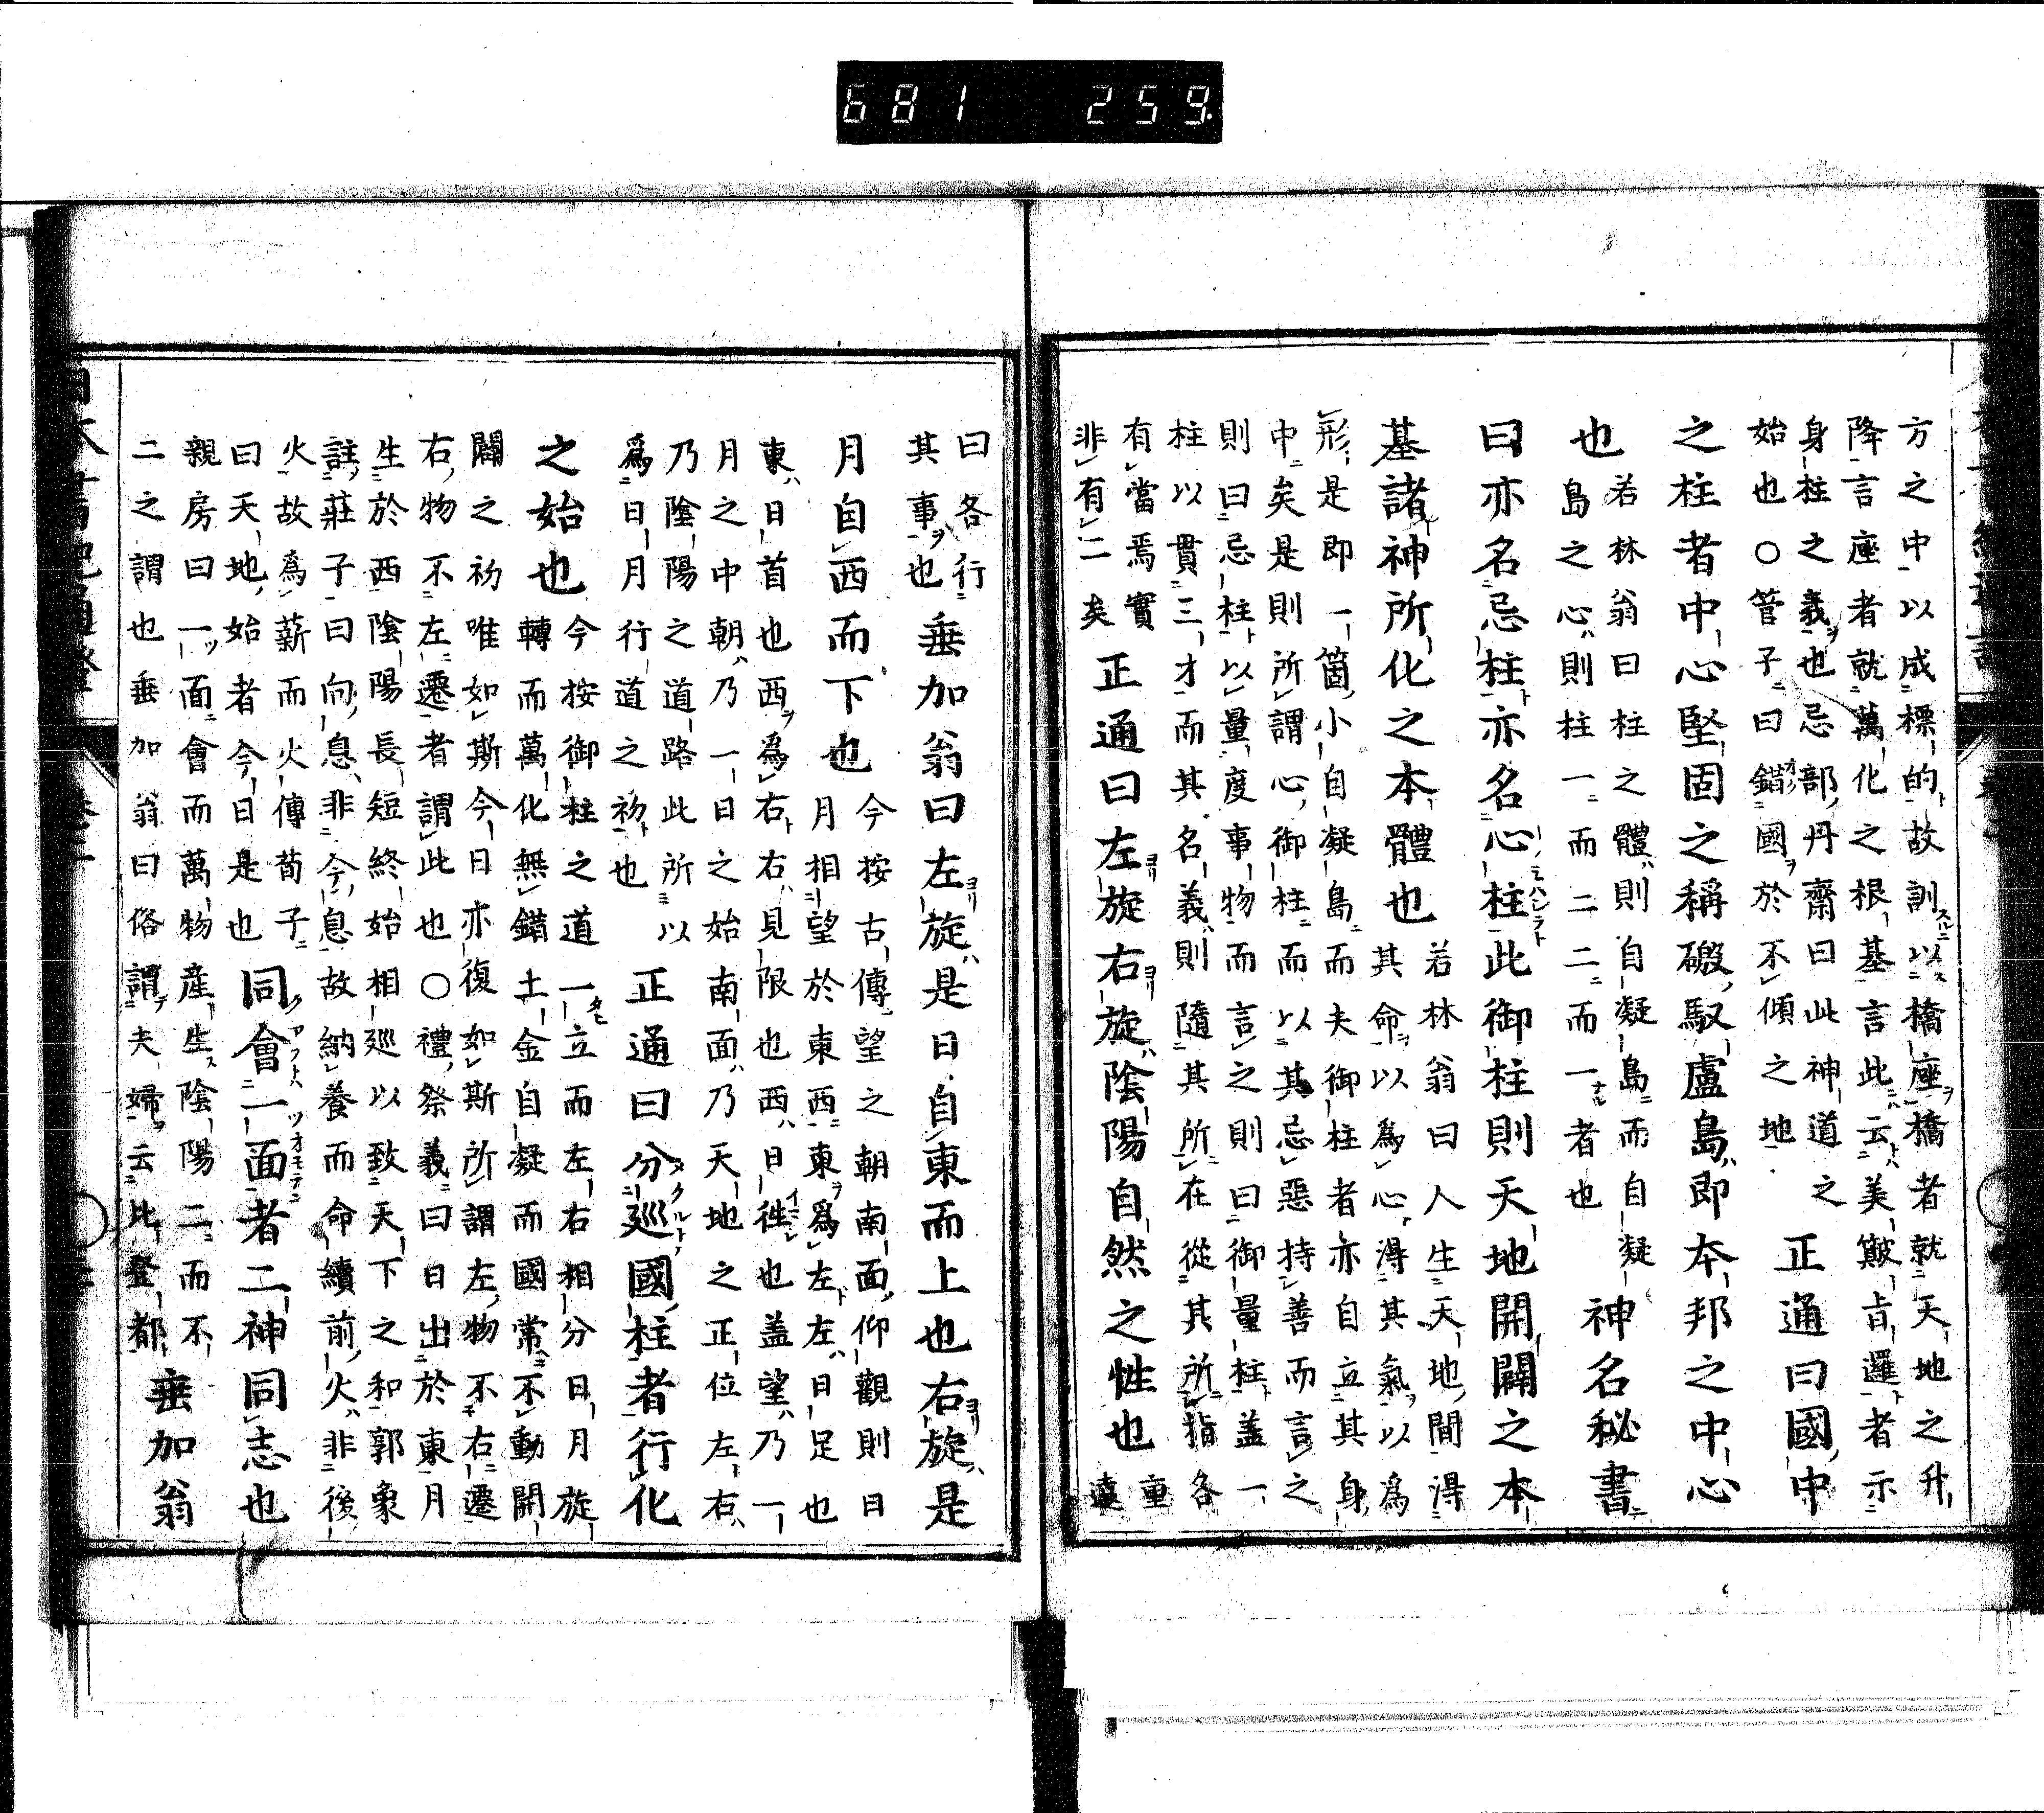 681 259
方之中以成標的故訓以橋座橋者就天地之升
降言座者就萬化之根基言此云美簸旨邏者示
身柱之義也忌部丹齋曰此神道之
始也〇管子曰錯國於不傾之地
正通曰國中
之柱者中心堅固之稱磤馭盧島即本邦之中心
也
若林翁曰柱之體則自凝島而自凝
島之心則柱一而二二而一者也
神名秘書
曰亦名忌柱亦名心柱此御柱則天地開闢之本
基諸神所化之本體也
若林翁曰人生天地間得
其命以為心得其氣以為
形是即一箇小自凝島而夫御柱者亦自立其身
中矣是則所謂心御柱而以其忌惡持善而言之
則曰忌柱以量度事物而言之則曰御量柱蓋一
柱以貫三才而其名義則隨其所在從其所指各
有當焉實
非有二矣
正通曰左旋右旋陰陽自然之性也
重
遠
曰各行
其事也
垂加翁曰左旋是日自東而上也右旋是
月自西而下也
今按古傳望之朝南面仰觀則日
月相望於東西東為左左日足也
東日首也西為右右見限也西日徃也蓋望乃一
月之中朝乃一日之始南面乃天地之正位左右
乃陰陽之道路此所以
為日月行道之初也
正通曰分巡國柱者行化
之始也
今按御柱之道一立而左右相分日月旋
轉而萬化無錯土金自凝而國常不動開
闢之初唯如斯今日亦復如斯所謂左物不右遷
右物不左遷者謂此也〇禮祭義曰日出於東月
生於西陰陽長短終始相巡以致天下之和郭象
註莊子曰向息非今息故納養而命續前火非後
火故為薪而火傳荀子
曰天地始者今日是也
同會一面者二神同志也
親房曰一面會而萬物産生陰陽二而不
二之謂也垂加翁曰俗謂夫婦云比登都
垂加翁